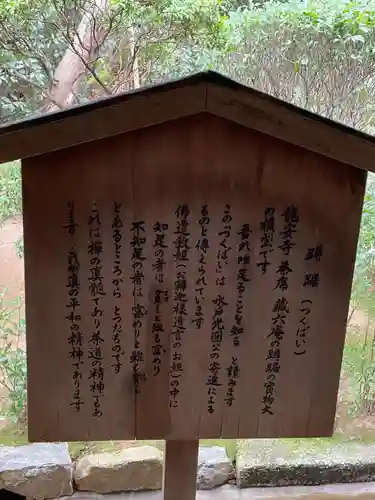 蹲踞（つくばい）
龍安寺 茶席 蔵六庵の蹲踞の実物大
の模型です
吾れ唯足ることを知る と読みます
この「つくばい」は 水戸光圀公の寄進による
ものと傳えられています
佛道教経（お釈迦様遺言のお経）の中に
知足の者は 貧しと雖も富めり
不知足の者は 富めりと雖も貧し
とあるところから とったものです
これは禅の真髄であり茶道の精神であ
ります 我が真の平和の精神であります